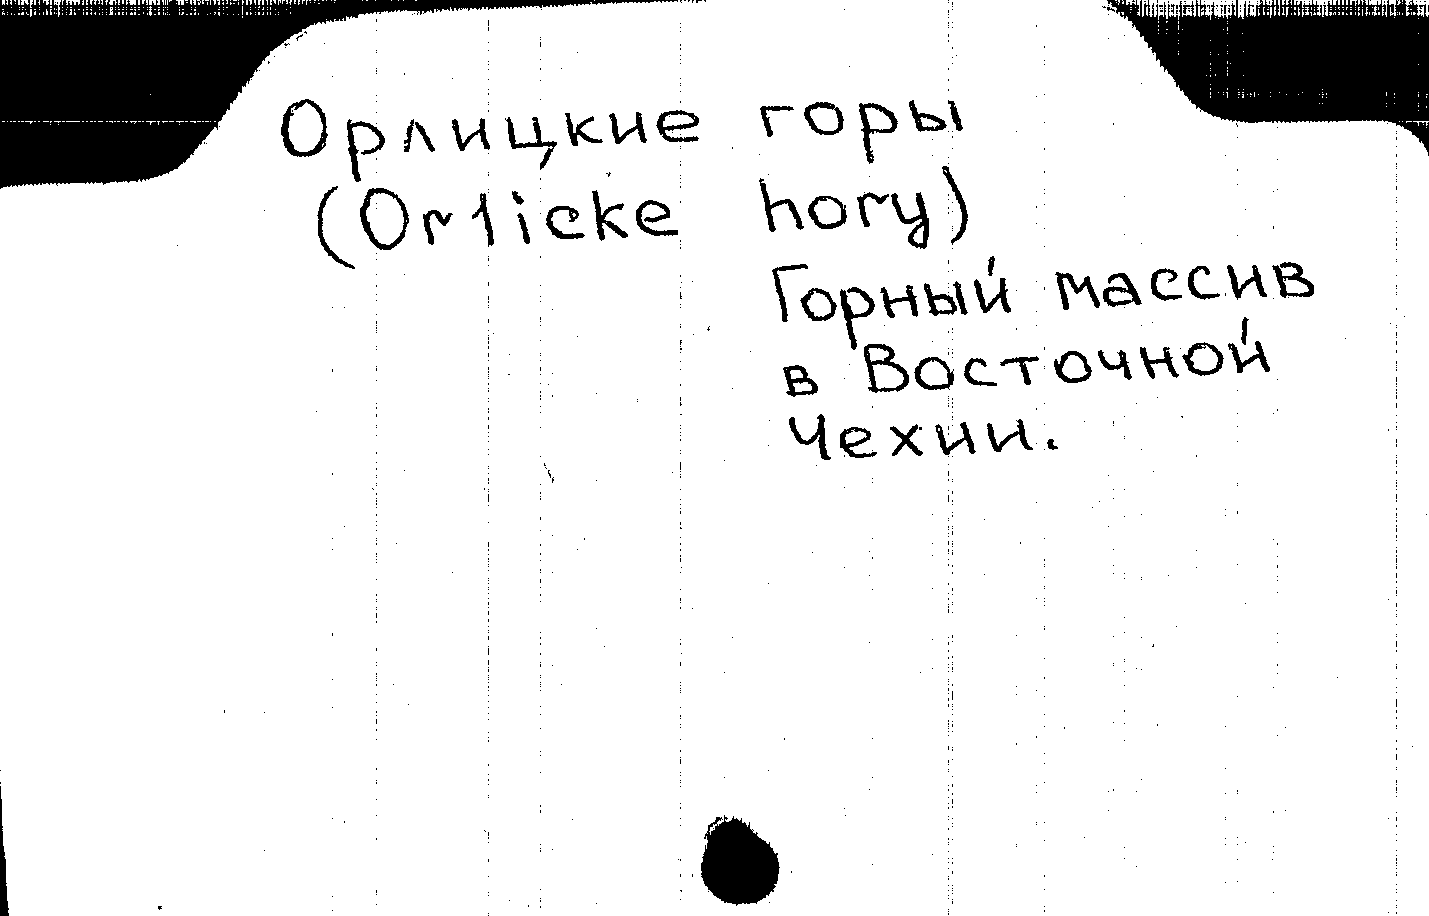 Орлицкие горы
(Orlicke hory)
Горный массив
в Восточной
Чехии.